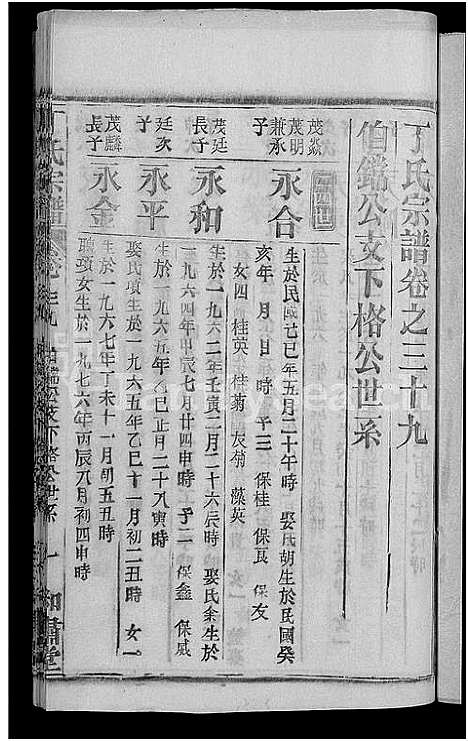 丁氏宗譜卷之三十九
伯鐺公支下格公世系
世
茂燚
茂明
兼承
子
永合
生於民國己巳年五月二十午時 娶氏胡生於民國癸
亥年 月 日 時 子三 保桂 保良 保友
女四 桂英 桂菊 友菊 藻英
茂廷
長子
永和
生於一九六二年壬寅二月二十六辰時 娶氏余生於
一九六四年甲辰七月廿四申時 子二 保鑫 保威
廷次
子
永平
生於一九六五年乙巳正月二十八寅時
娶氏項生於一九六五年乙巳十一月初二丑時 女一
茂麟
長子
永金
生於一九六七年丁未十一月初五丑時
聘項女生於一九七六年丙辰八月初四申時
丁氏宗譜 卷之三十九 伯鐺公支下格公世系 一